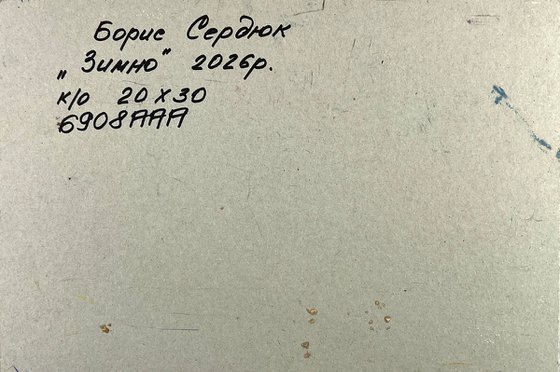 Борис Сердюк
„Зимно" 2026р.
к/о 20 х 30
6908ААА